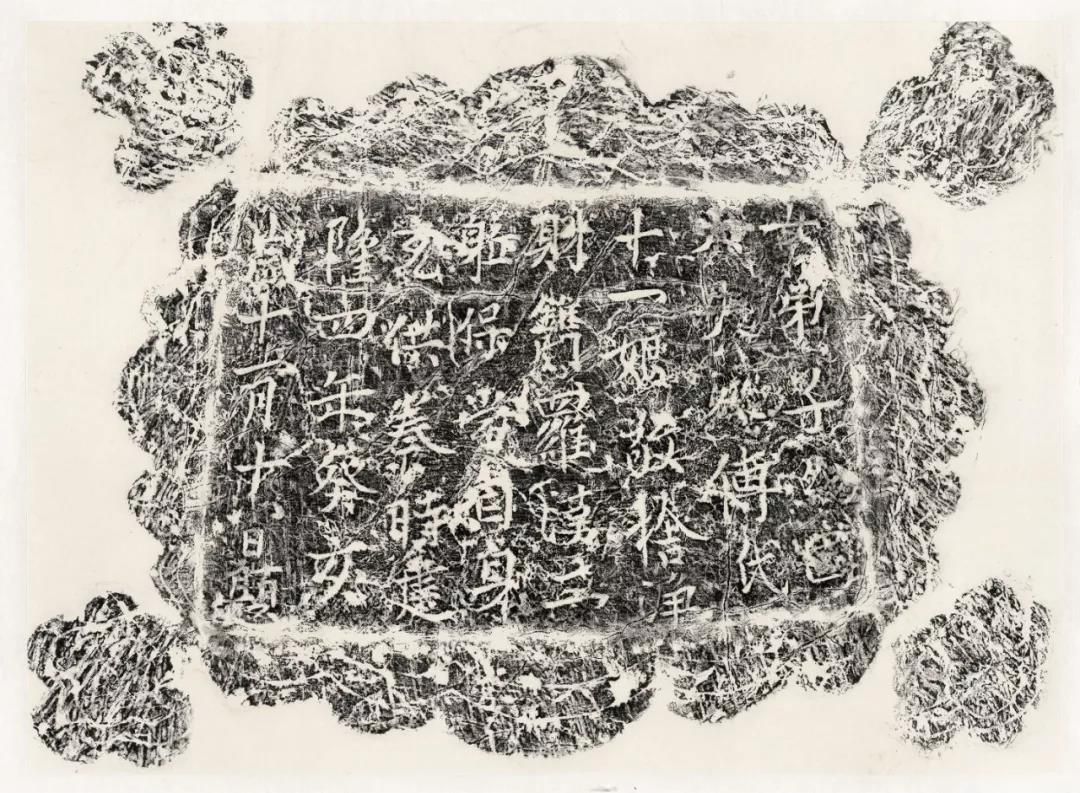 女弟子
傅氏
十一娘敬捨淨
財鐫羅漢三
軀保安自身
充供養時建
隆四年癸亥
歲十一月十八日題